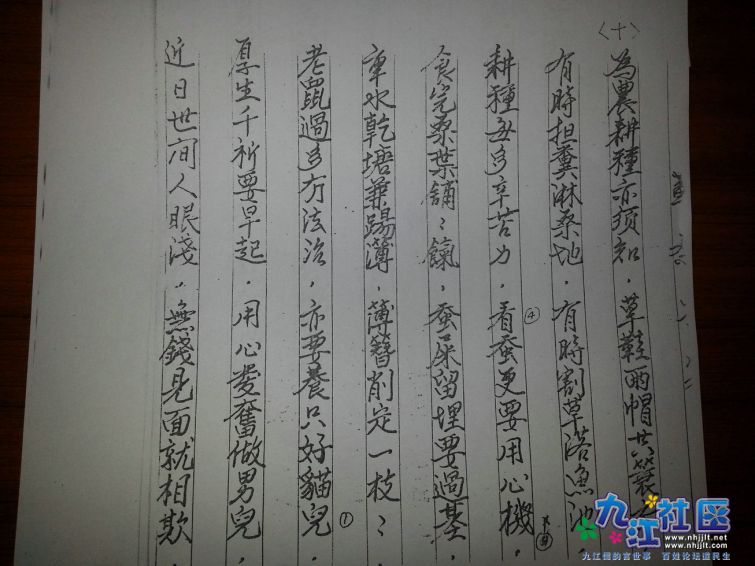 〈十〉
為農耕種亦須知．草鞋雨帽共簑
有時担糞淋桑地．有時割草落魚池．
耕種無多辛苦力．看蚕更要用心機．
④
食完桑葉舖〻．蚕屎留埋要過基．
車水乾塘兼踢薄．薄簪削定一枝〻
老鼠過多冇法治．亦要養只好貓兒．
①
厚生千祈要早起．用心發奮做男兒．
近日世间人眼淺．無錢見面就相欺．
九江社区
www.nhjjlt.net
www.nhjjlt.com
九江儒韵言世事 百姓论坛道民生